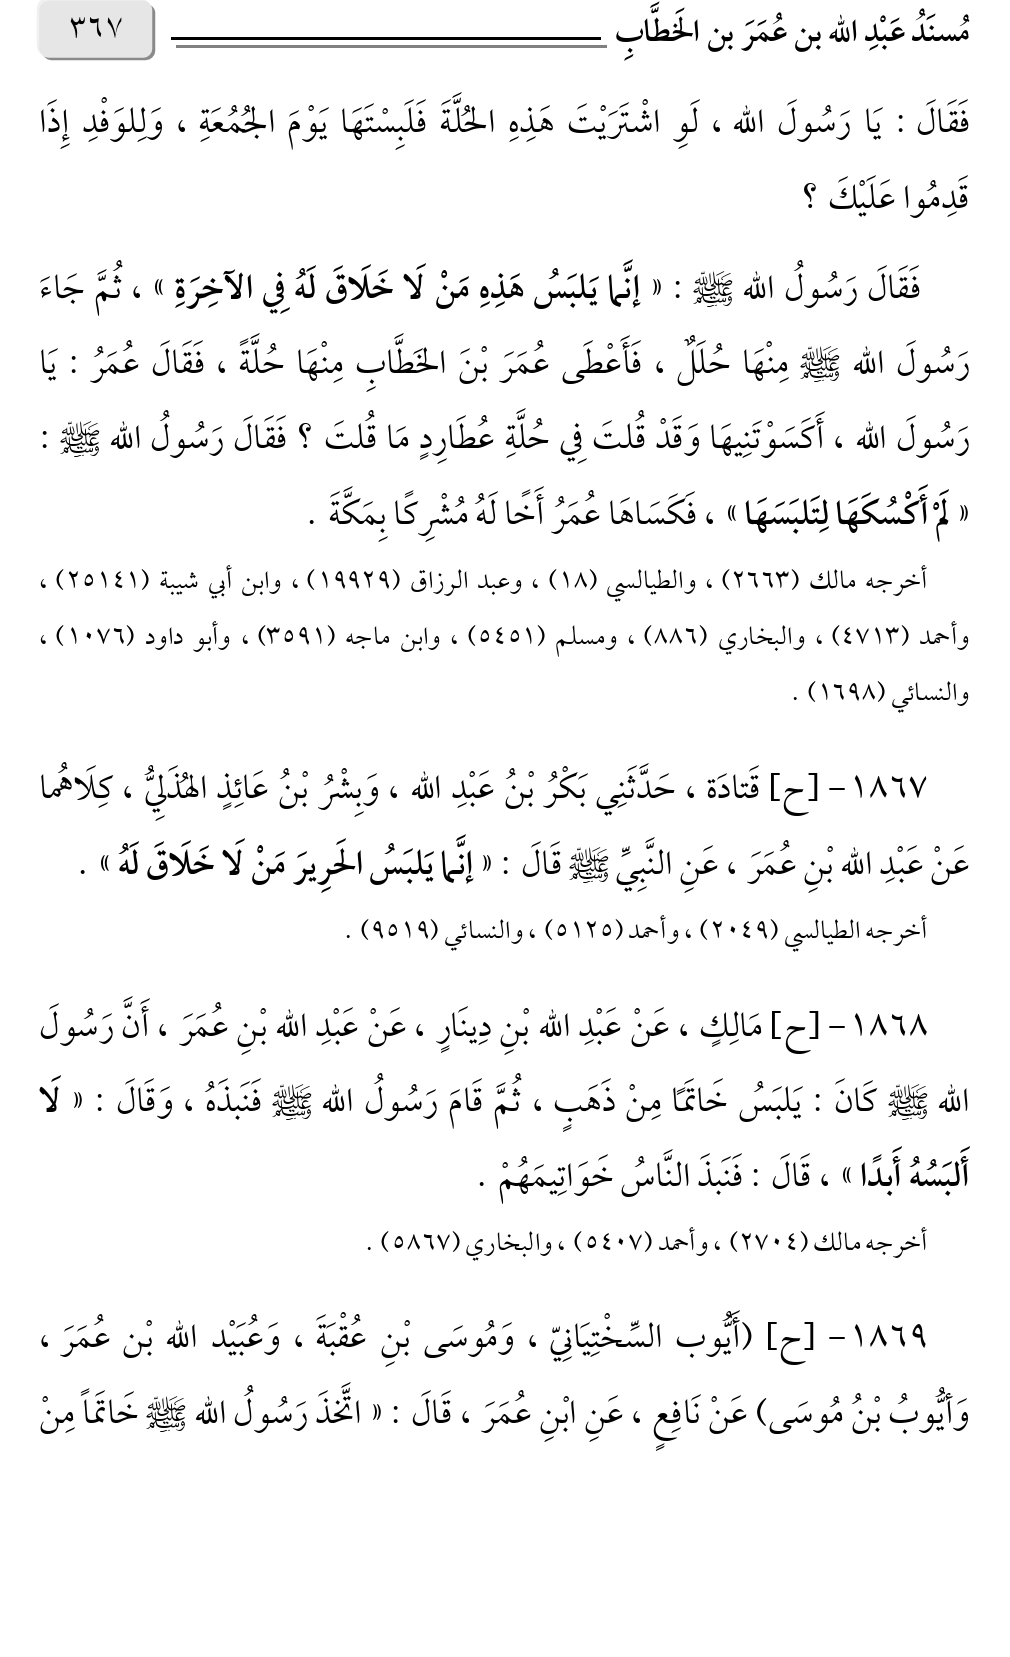 مُسنَدُ عَبْدِ الله بن عُمَرَ بن الخَطَّابِ ٣٦٧
فَقَالَ : يَا رَسُولَ الله ، لَوِ اشْتَرَيْتَ هَذِهِ الحُلَّةَ فَلَبِسْتَهَا يَوْمَ الجُمُعَةِ ، وَلِلوَفْدِ إِذَا
قَدِمُوا عَلَيْكَ ؟
فَقَالَ رَسُولُ الله ﷺ : « إنَّما يَلبَسُ هَذِهِ مَنْ لَا خَلَاقَ لَهُ فِي الآخِرَةِ » ، ثُمَّ جَاءَ
رَسُولَ الله ﷺ مِنْهَا حُلَلٌ ، فَأَعْطَى عُمَرَ بْنَ الخَطَّابِ مِنْهَا حُلَّةً ، فَقَالَ عُمَرُ : يَا
رَسُولَ الله ، أَكَسَوْتَنِيهَا وَقَدْ قُلتَ فِي حُلَّةِ عُطَارِدٍ مَا قُلتَ ؟ فَقَالَ رَسُولُ الله ﷺ :
« لَمْ أَكْسُكَهَا لِتَلبَسَهَا » ، فَكَسَاهَا عُمَرُ أَخًا لَهُ مُشْرِكًا بِمَكَّةَ .
أخرجه مالك (٢٦٦٣) ، والطيالسي (١٨) ، وعبد الرزاق (١٩٩٢٩) ، وابن أبي شيبة (٢٥١٤١) ،
وأحمد (٤٧١٣) ، والبخاري (٨٨٦) ، ومسلم (٥٤٥١) ، وابن ماجه (٣٥٩١) ، وأبو داود (١٠٧٦) ،
والنسائي (١٦٩٨) .
١٨٦٧ – [ح] قَتادَة ، حَدَّثَنِي بَكْرُ بْنُ عَبْدِ الله ، وَبِشْرُ بْنُ عَائِذٍ الهُذَلِيُّ ، كِلَاهُما
عَنْ عَبْدِ الله بْنِ عُمَرَ ، عَنِ النَّبِيِّ ﷺ قَالَ : « إنَّما يَلبَسُ الحَرِيرَ مَنْ لَا خَلَاقَ لَهُ » .
أخرجه الطيالسي (٢٠٤٩) ، وأحمد (٥١٢٥) ، والنسائي (٩٥١٩) .
١٨٦٨ – [ح] مَالِكٍ ، عَنْ عَبْدِ الله بْنِ دِينَارٍ ، عَنْ عَبْدِ الله بْنِ عُمَرَ ، أَنَّ رَسُولَ
الله ﷺ كَانَ : يَلبَسُ خَاتمًا مِنْ ذَهَبٍ ، ثُمَّ قَامَ رَسُولُ الله ﷺ فَنَبَذَهُ ، وَقَالَ : « لَا
أَلبَسُهُ أَبدًا » ، قَالَ : فَنَبذَ النَّاسُ خَوَاتِيمَهُمْ .
أخرجه مالك (٢٧٠٤) ، وأحمد (٥٤٠٧) ، والبخاري (٥٨٦٧) .
١٨٦٩ – [ح] (أَيُّوب السِّخْتِيَانِيّ ، وَمُوسَى بْنِ عُقْبَةَ ، وَعُبَيْد الله بْن عُمَرَ ،
وَأيُّوبُ بْنُ مُوسَى) عَنْ نَافِعٍ ، عَنِ ابْنِ عُمَرَ ، قَالَ : « اتَّخذَ رَسُولُ الله ﷺ خَاتَماً مِنْ